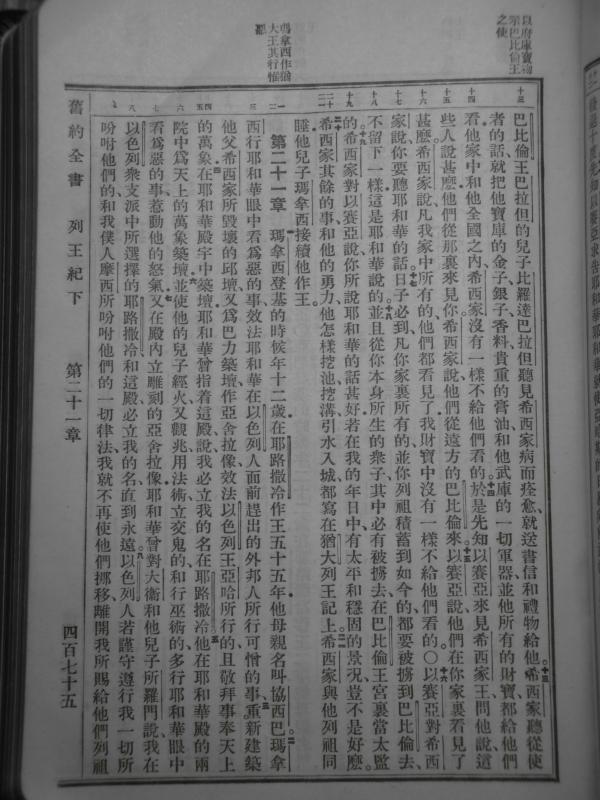 以府庫寶物
示巴比倫王
之使
瑪拿西作猶
大王其行惟
惡
十三
巴比倫王巴拉但的兒子比羅達巴拉但聽見希西家病而痊愈就送書信和禮物給他希西家聽從使
者的話就把他寶庫的金子銀子香料貴重的膏油和他武庫的一切軍器並他所有的財寶都給他們
十四
看他家中和他全國之內希西家沒有一樣不給他們看的於是先知以賽亞來見希西家王問他說這
十五
些人說甚麼他們從那裏來見你希西家說他們從遠方的巴比倫來以賽亞說他們在你家裏看見了
十六
甚麼希西家說凡我家中所有的他們都看見了我財寶中沒有一樣不給他們看的〇以賽亞對希西
十七
家說你要聽耶和華的話日子必到凡你家裏所有的並你列祖積蓄到如今的都要被擄到巴比倫去
十八
不留下一樣這是耶和華說的並且從你本身所生的衆子其中必有被擄去在巴比倫王宮裏當太監
十九
的希西家對以賽亞說你所說耶和華的話甚好若在我的年日中有太平和穩固的景況豈不是好麼
二十
希西家其餘的事和他的勇力他怎樣挖池挖溝引水入城都寫在猶大列王記上希西家與他列祖同
睡他兒子瑪拿西接續他作王
第二十一章 瑪拿西登基的時候年十二歲在耶路撒冷作王五十五年他母親名叫協西巴瑪拿
西行耶和華眼中看爲惡的事效法耶和華在以色列人面前趕出的外邦人所行可憎的事重新建築
三
他父希西家所毀壞的邱壇又爲巴力築壇作亞舍拉像效法以色列王亞哈所行的且敬拜事奉天上
四五
的萬象在耶和華殿宇中築壇耶和華曾指着這殿說我必立我的名在耶路撒冷他在耶和華殿的兩
六
院中爲天上的萬象築壇並使他的兒子經火又觀兆用法術立交鬼的和行巫術的多行耶和華眼中
七
看爲惡的事惹動他的怒氣又在殿內立雕刻的亞舍拉像耶和華曾對大衛和他兒子所羅門說我在
八
以色列衆支派中所選擇的耶路撒冷和這殿必立我的名直到永遠以色列人若謹守遵行我一切所
吩咐他們的和我僕人摩西所吩咐他們的一切律法我就不再使他們挪移離開我所賜給他們列祖
舊約全書 列王紀下 第二十一章 四百七十五